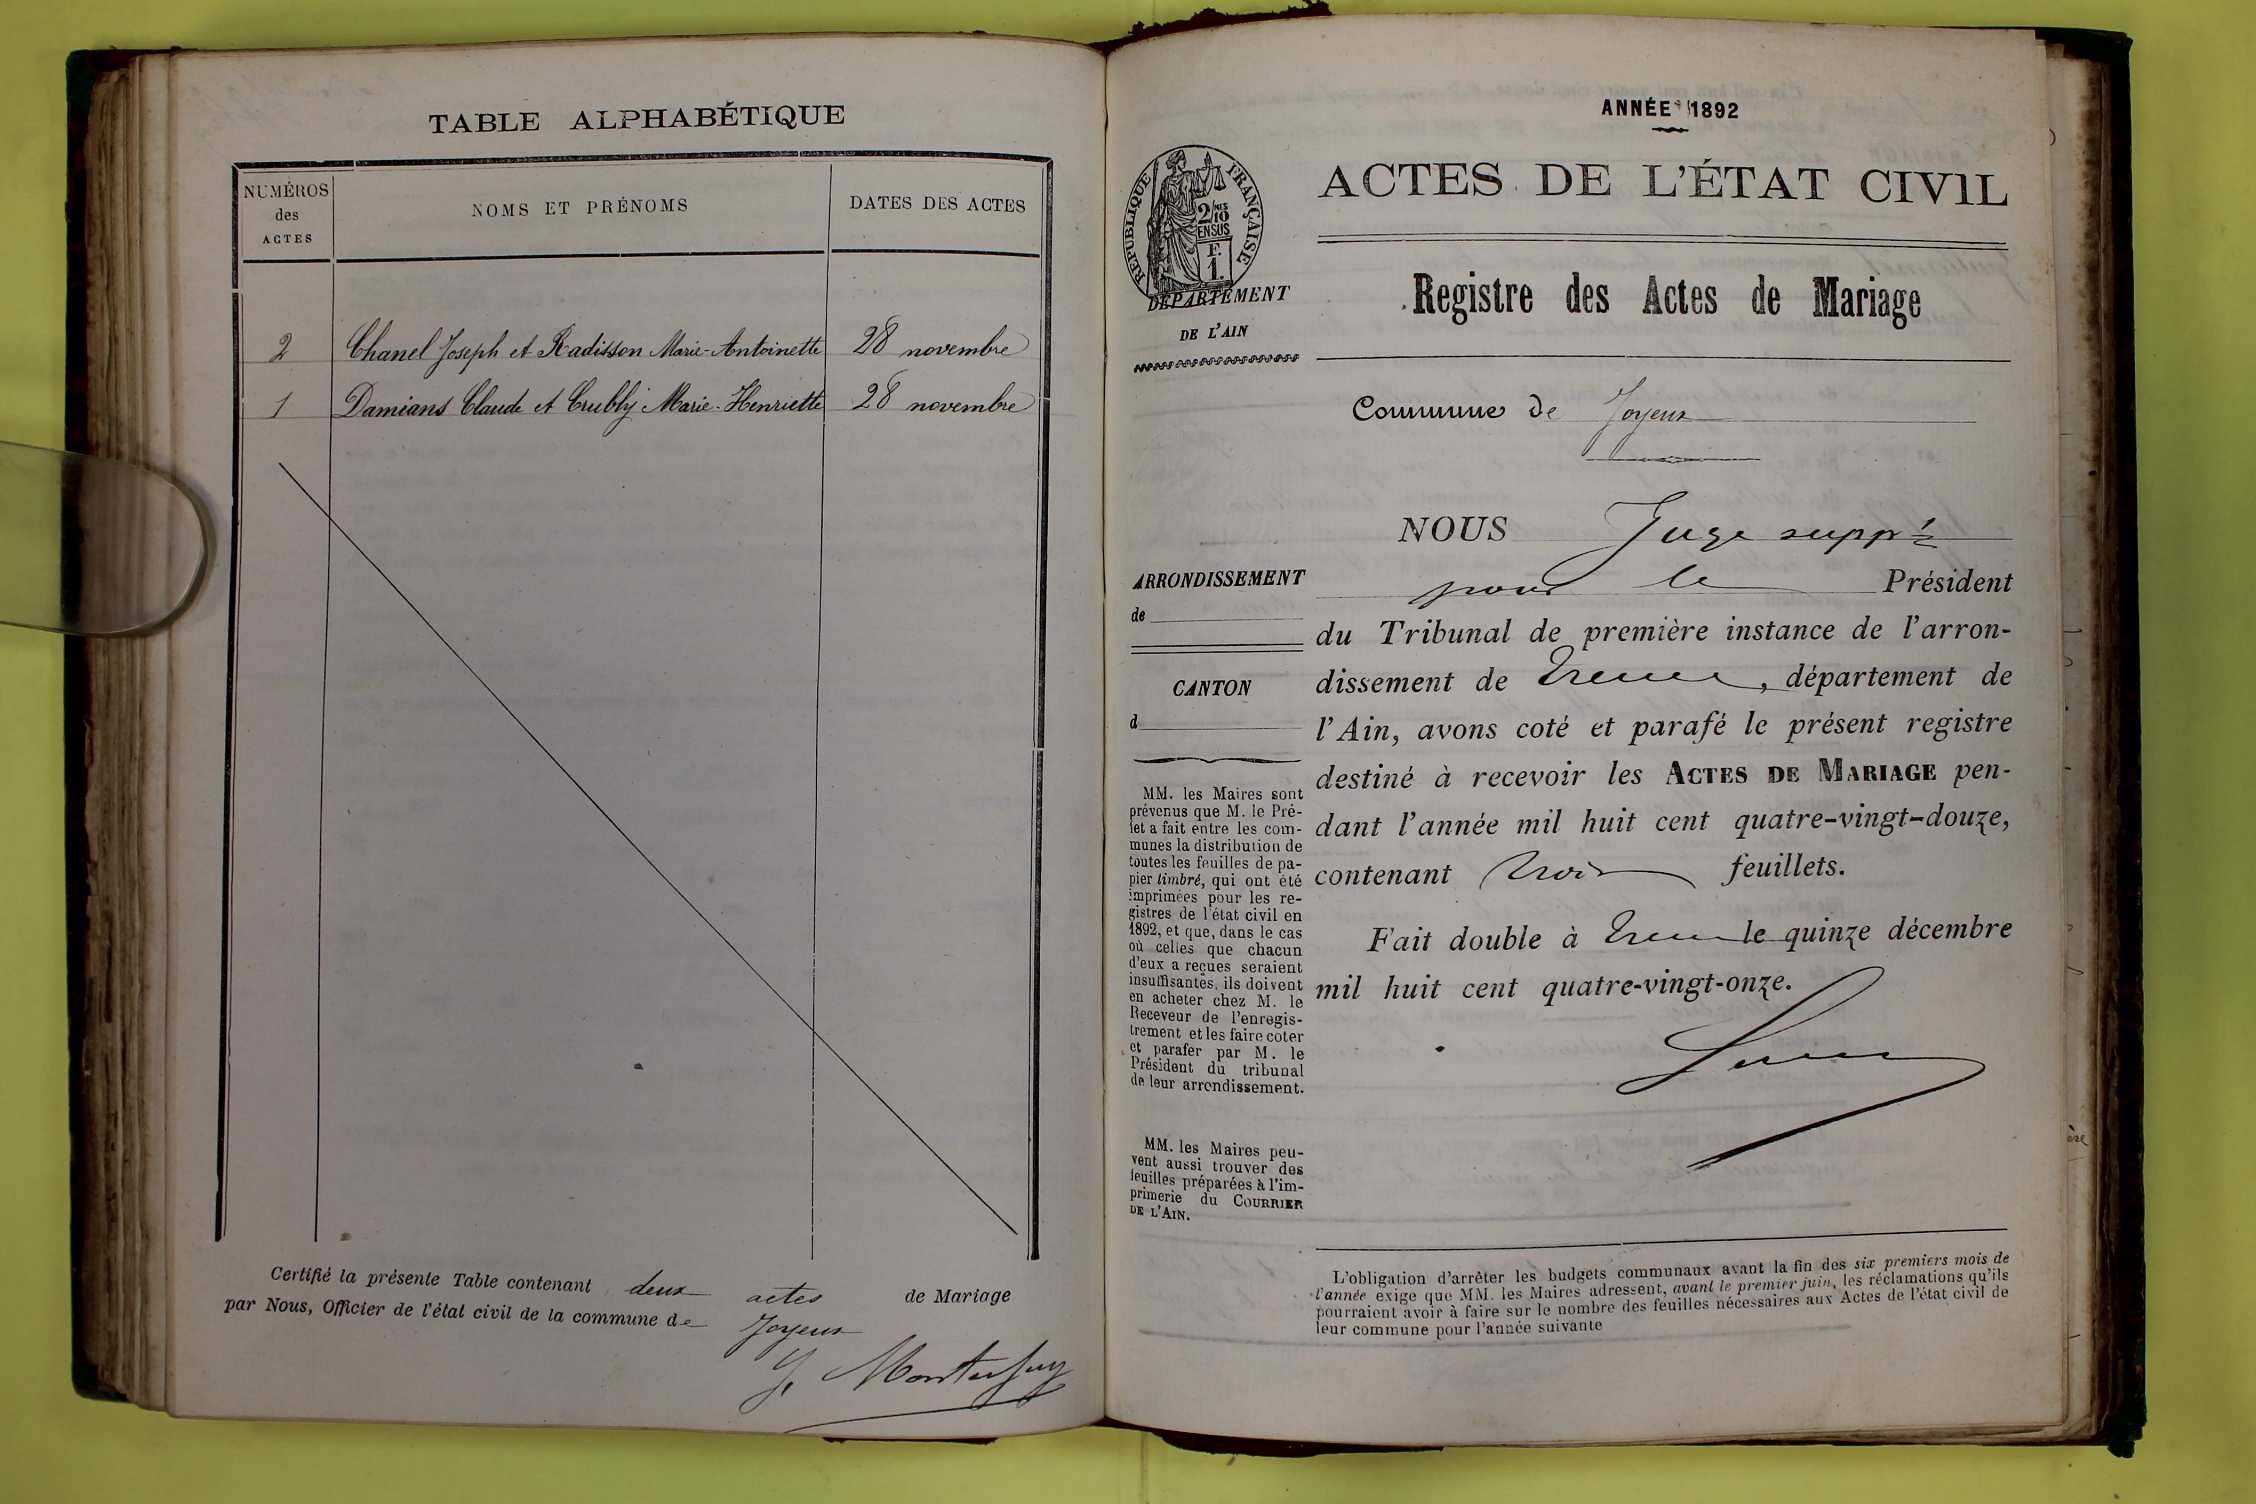 TABLE ALPHABÉTIQUE
NUMÉROS
des
ACTES
NOMS ET PRÉNOMS
DATES DES ACTES
2 Chanel Joseph et Radisson Marie-Antoinette 28 novembre
1 Damians Claude et Crubly Marie-Henriette 28 novembre
Certifié la présente Table contenant deux actes de Mariage
par Nous, Officier de l'état civil de la commune de Joyeux
J. Monterfuy
ANNÉE 1892
RÉPUBLIQUE FRANÇAISE
2/10
EN SUS
F.
1.
DÉPARTEMENT
DE L'AIN
ACTES DE L'ÉTAT CIVIL
Registre des Actes de Mariage
Commune de Joyeux
ARRONDISSEMENT
de
CANTON
d
MM. les Maires sont
prévenus que M. le Pré-
fet a fait entre les com-
munes la distribution de
toutes les feuilles de pa-
pier timbré, qui ont été
imprimées pour les re-
gistres de l'état civil en
1892, et que, dans le cas
où celles que chacun
d'eux a reçues seraient
insuffisantes, ils doivent
en acheter chez M. le
Receveur de l'enregis-
trement et les faire coter
et parafer par M. le
Président du tribunal
de leur arrondissement.
MM. les Maires peu-
vent aussi trouver des
feuilles préparées à l'im-
primerie du COURRIER
DE L'AIN.
NOUS Juge supp't
pour le Président
du Tribunal de première instance de l'arron-
dissement de Trevoux, département de
l'Ain, avons coté et parafé le présent registre
destiné à recevoir les ACTES DE MARIAGE pen-
dant l'année mil huit cent quatre-vingt-douze,
contenant trois feuillets.
Fait double à Trevoux le quinze décembre
mil huit cent quatre-vingt-onze.
L'obligation d'arrêter les budgets communaux avant la fin des six premiers mois de
l'année exige que MM. les Maires adressent, avant le premier juin, les réclamations qu'ils
pourraient avoir à faire sur le nombre des feuilles nécessaires aux Actes de l'état civil de
leur commune pour l'année suivante